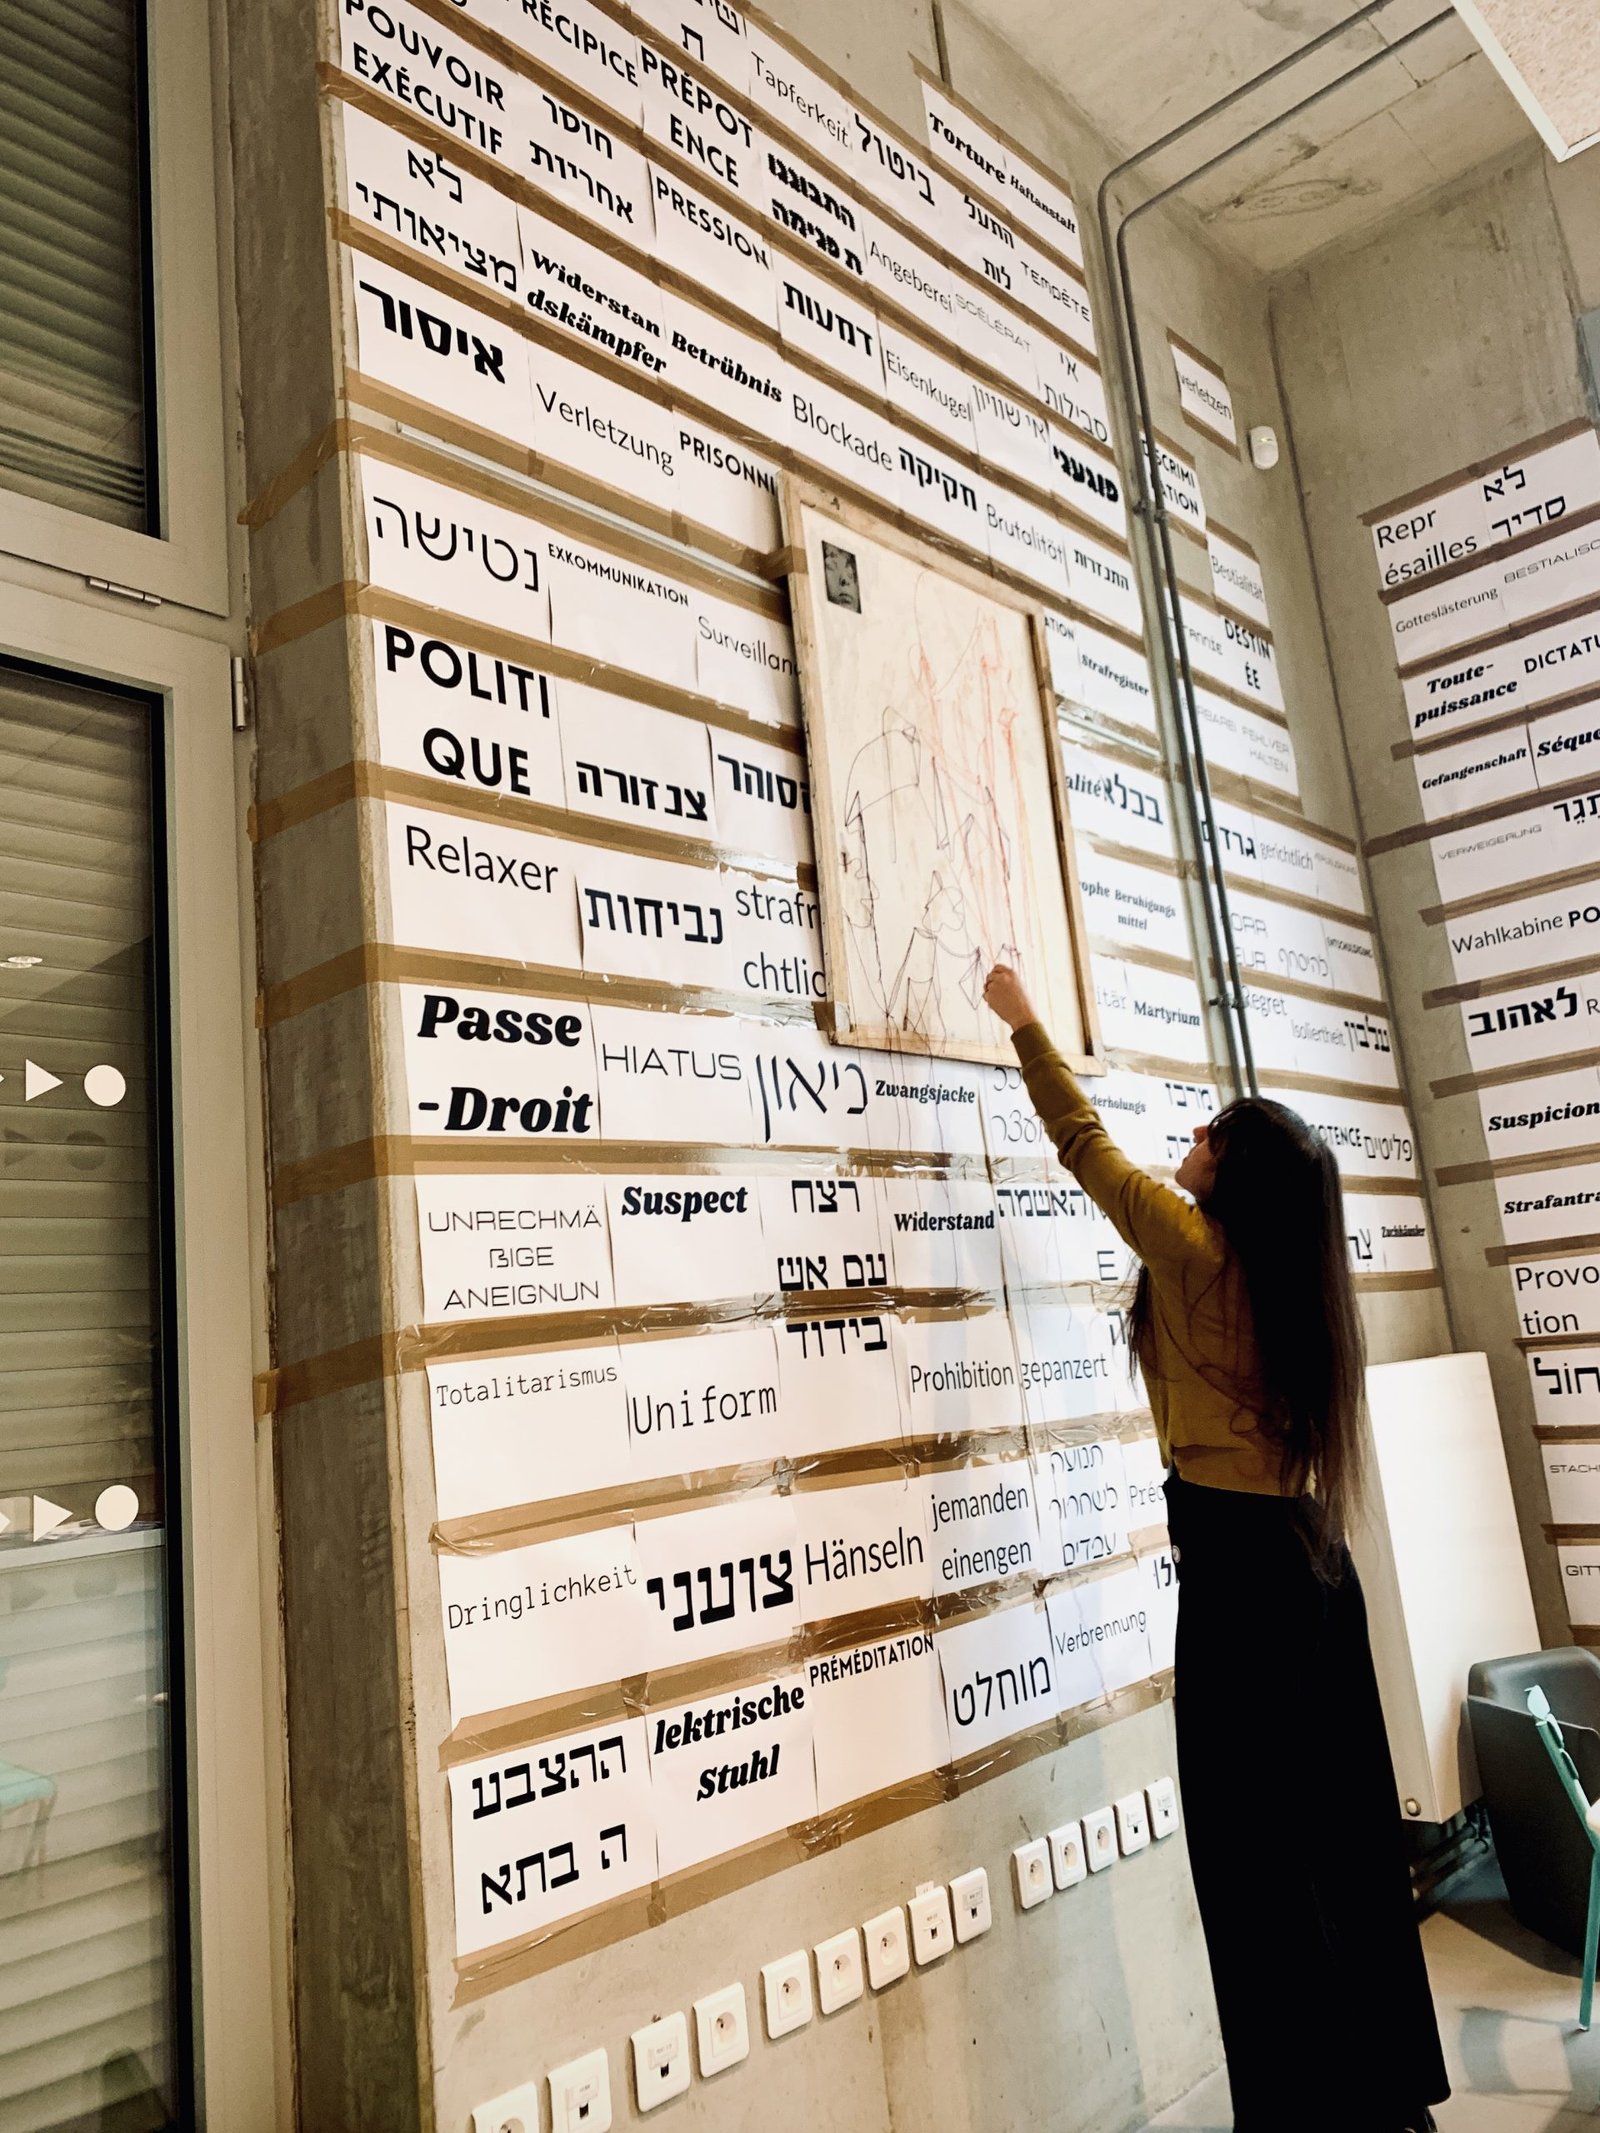 POUVOIR
EXÉCUTIF
חוסר
אחריות
PRÉPOT
ENCE
Tapferkeit
ביטול
Torture
Haftanstalt
לא
מציאותי
PRESSION
התבוננו
ת פנימה
Angeberei
התעל
לות
TEMPÊTE
איסור
Widerstan
dskämpfer
Betrübnis
דמעות
Eisenkugel
SCÉLÉRAT
אי
סבילות
Verletzung
PRISONNI
Blockade
חקיקה
אי שוויון
פוגעני
נטישה
EXKOMMUNIKATION
Surveillan
Brutalität
התנזרות
POLITI
QUE
צנזורה
הסוהר
Strafregister
Relaxer
נביחות
strafr
chtlic
alité
בבלא
Passe
-Droit
HIATUS
ניאון
Zwangsjacke
ophe
Beruhigungs
mittel
itär
Martyrium
derholungs
UNRECHMÄ
ßIGE
ANEIGNUN
Suspect
רצח
עם אש
Widerstand
האשמה
E
Totalitarismus
Uniform
בידוד
Prohibition
gepanzert
Dringlichkeit
צועני
Hänseln
jemanden
einengen
תנועה
לשחרור
עבדים
Préc
ההצבע
ה בתא
lektrische
Stuhl
PRÉMÉDITATION
מוחלט
Verbrennung
verletzen
Bestialität
DESTIN
ÉE
BARBAREI
FEHLVER
HALTEN
גרדום
gerichtlich
להיסחף
Regret
Isoliertheit
עלבון
פליטים
Zuchthäusler
Repr
ésailles
לא
סדיר
Gotteslästerung
BESTIALISC
Toute-
puissance
DICTATU
Gefangenschaft
Séque
VERWEIGERUNG
תגר
Wahlkabine
PO
לאהוב
R
Suspicion
Strafantra
Provo
tion
חול
STACH
GITT